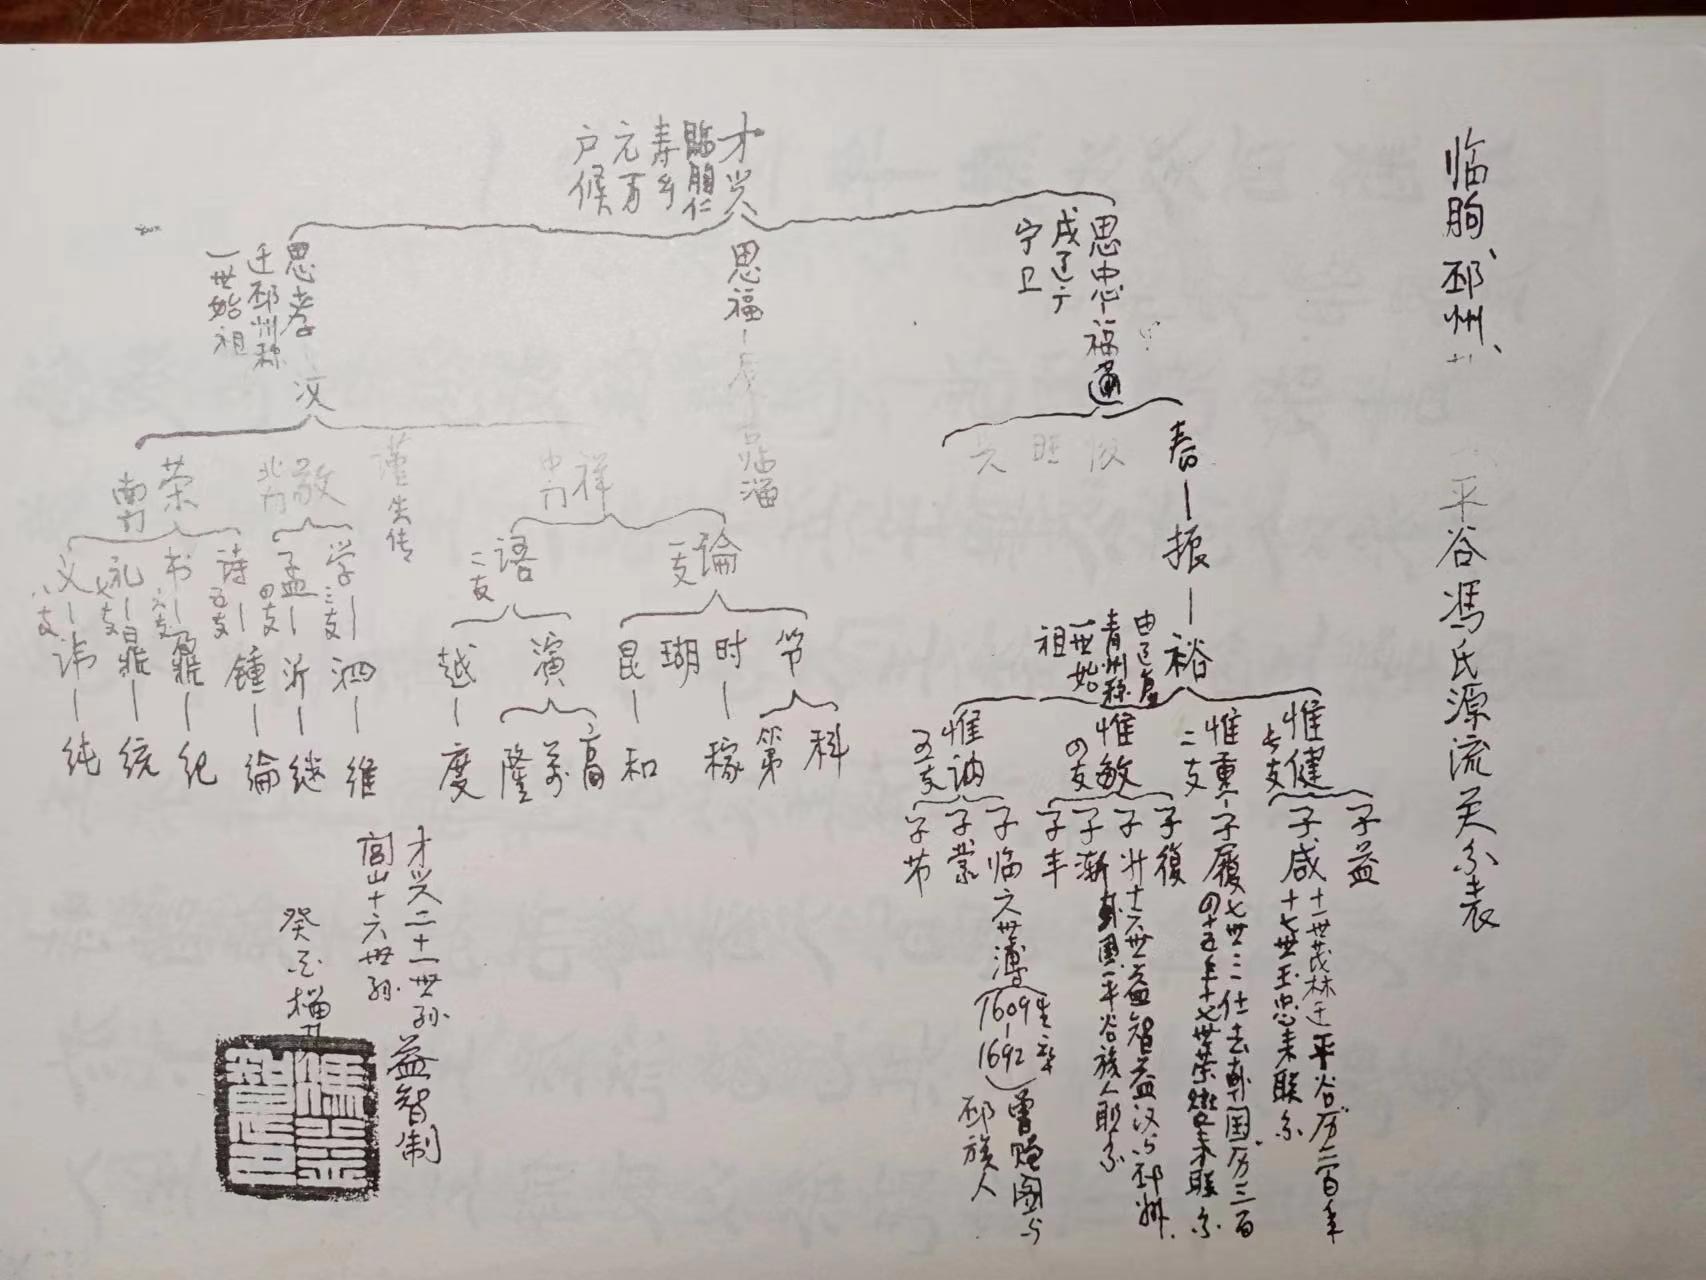 临朐、邳州、
平谷冯氏源流关系表
才兴
临朐仁
寿乡
元百
户候
思忠
福通
戍辽
宁卫
思福
临淄
思孝
迁邳州称
一世始祖
汉
春
振
裕
由辽复
青州称
一世始
祖
旺
兴
祥
中门
谨失传
敬
北门
荣
南门
论
一支
语
二支
学
三支
孟
四支
诗
五支
书
六支
礼
七支
义
八支
节
时
瑚
昆
演
越
泗
沂
锺
鼐
讳
科
第
稼
和
高
万
隆
度
维
继
纶
纪
统
纯
惟健
长支
惟重
二支
惟敏
四支
惟讷
五支
子益
子咸
十一世茂林迁平谷历二百年
十七世玉忠来联系
子履
七世三仕去韩国历三百
四十五年十七世荣燉来联系
子復
子升
十六世益智益汉与邳州、
韩国、平谷族人联系
子渐
子丰
子临
六世溥
(1609生
1692卒)
曾赐图与
邳族人
子蒙
子节
才兴二十一世孙益智制
闾山十六世孙
癸巳榴月